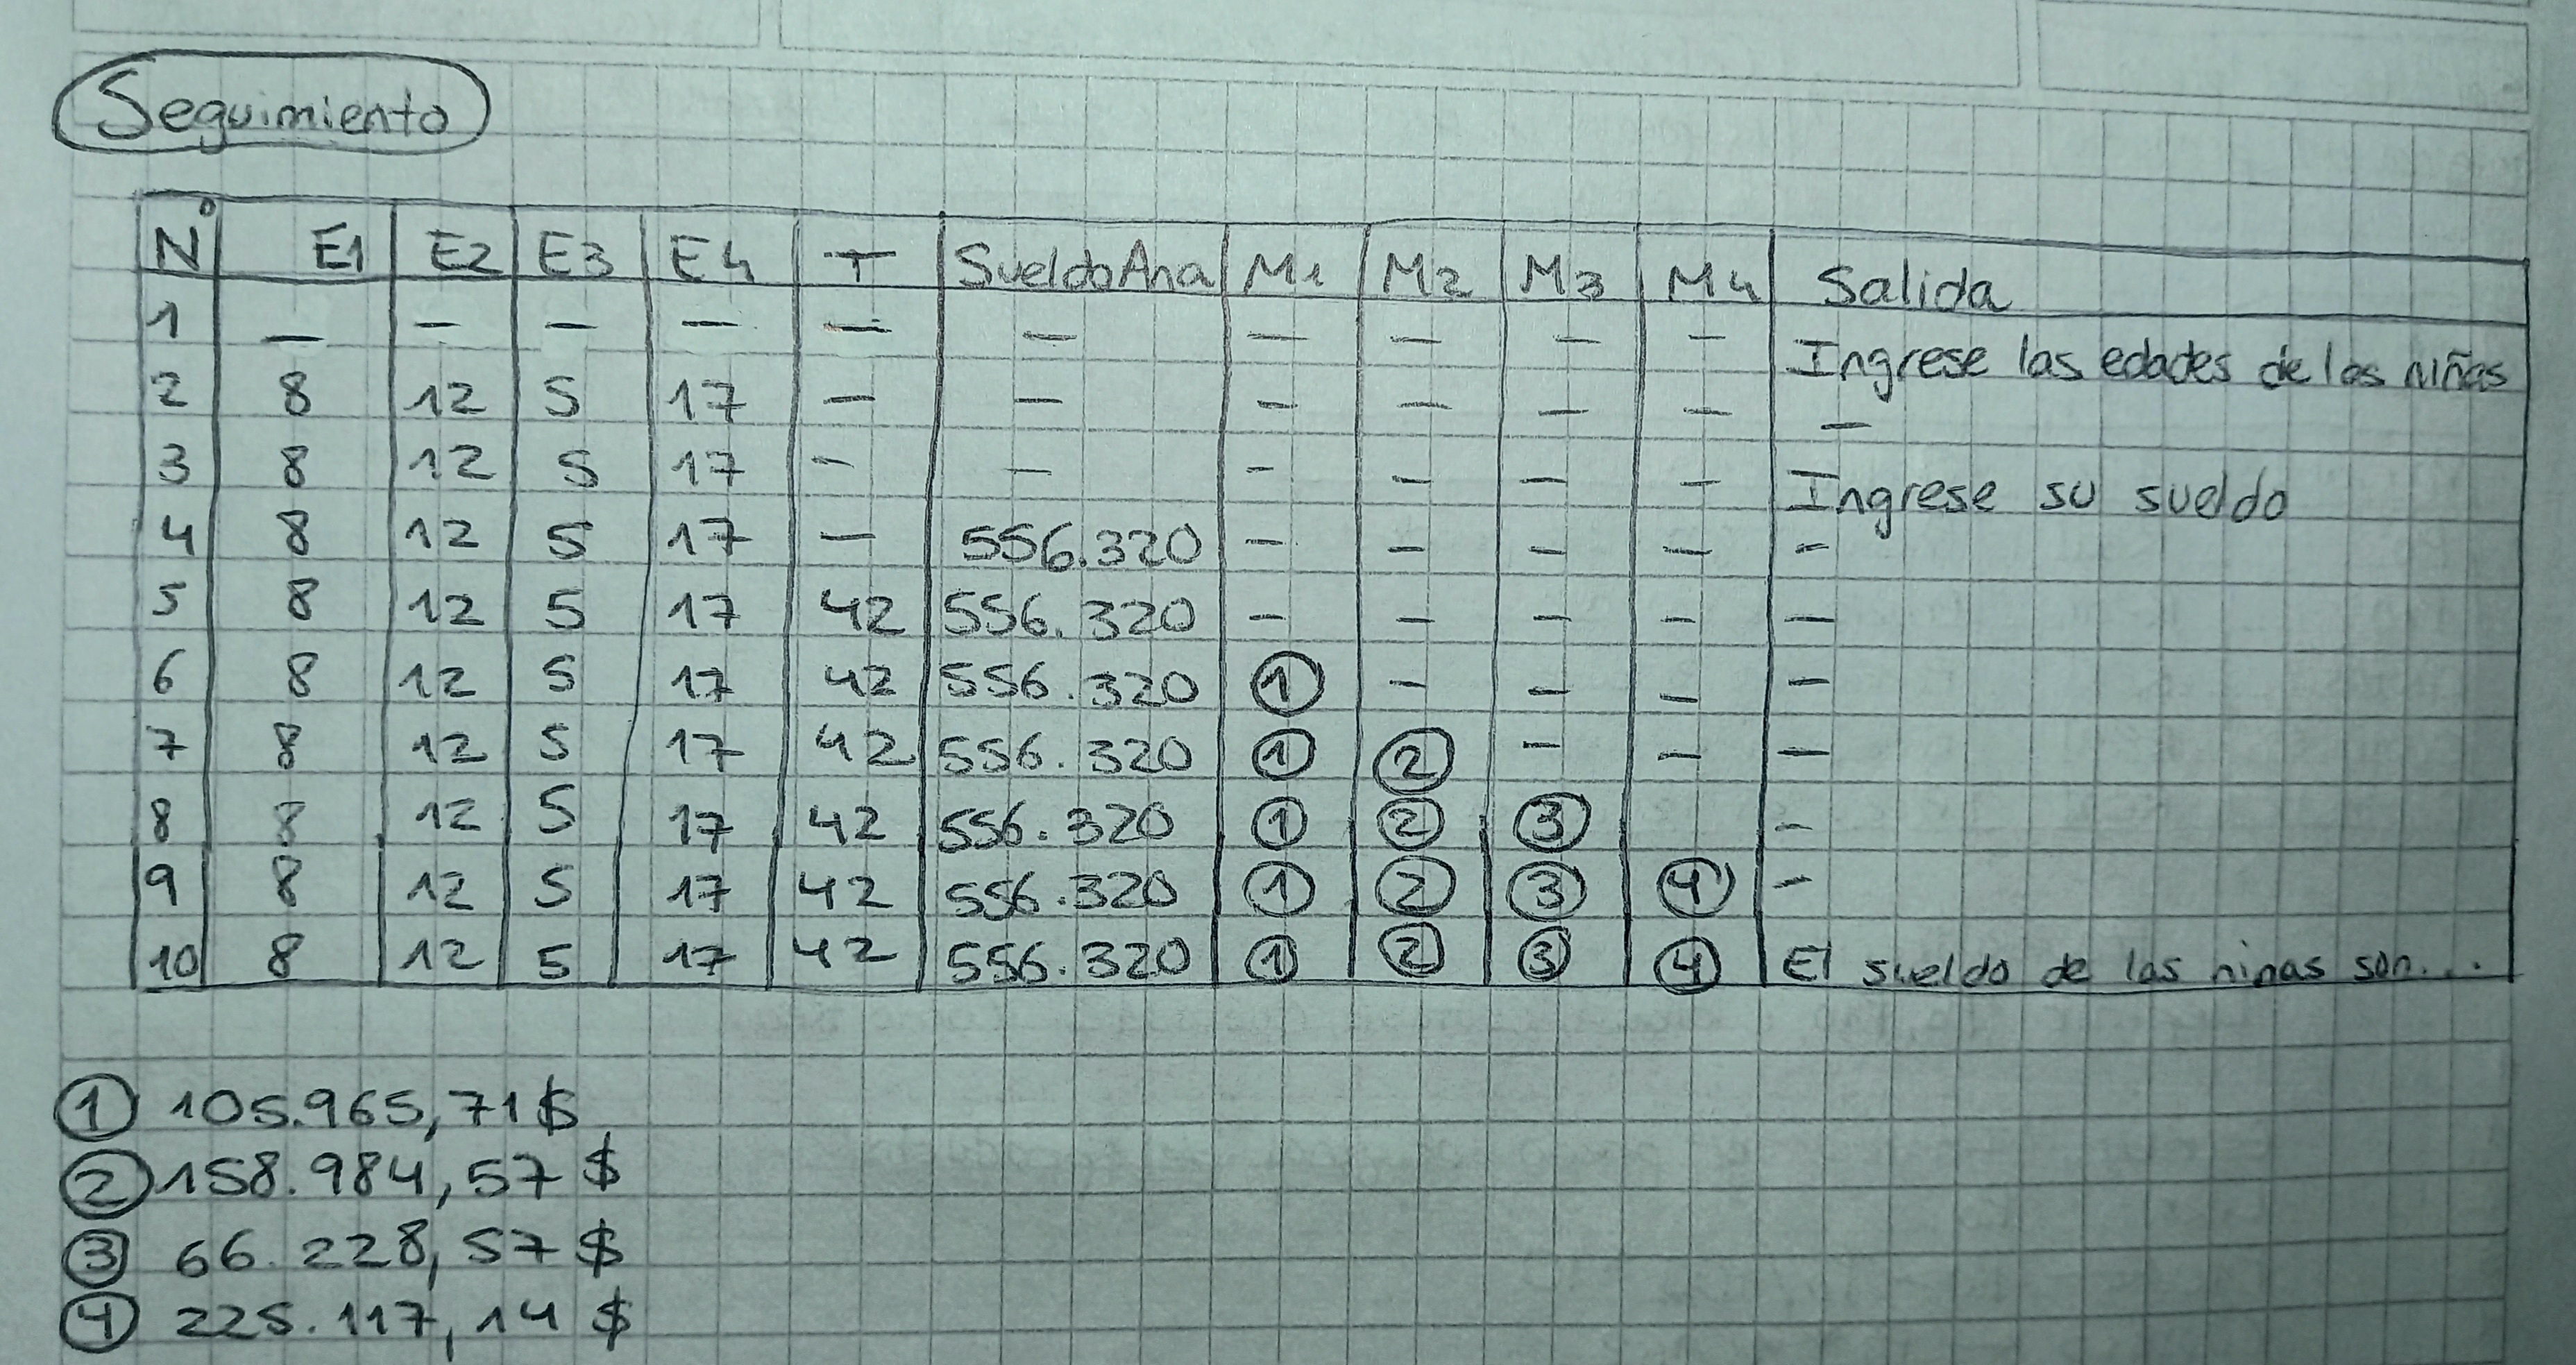 Seguimiento
N° E1 E2 E3 E4 T SueldoAna M1 M2 M3 M4 Salida
1 — — — — — — — — — — Ingrese las edades de las niñas
2 8 12 5 17 — — — — — — —
3 8 12 5 17 - — - — — — Ingrese su sueldo
4 8 12 5 17 — 556.320 — — — — -
5 8 12 5 17 42 556.320 — — — — —
6 8 12 5 17 42 556.320 ① — — — —
7 8 12 5 17 42 556.320 ① ② — — —
8 8 12 5 17 42 556.320 ① ② ③ -
9 8 12 5 17 42 556.320 ① ② ③ ④ -
10 8 12 5 17 42 556.320 ① ② ③ ④ El sueldo de las ninas son...
① 105.965,71 $
② 158.984,57 $
③ 66.228,57 $
④ 225.117,14 $